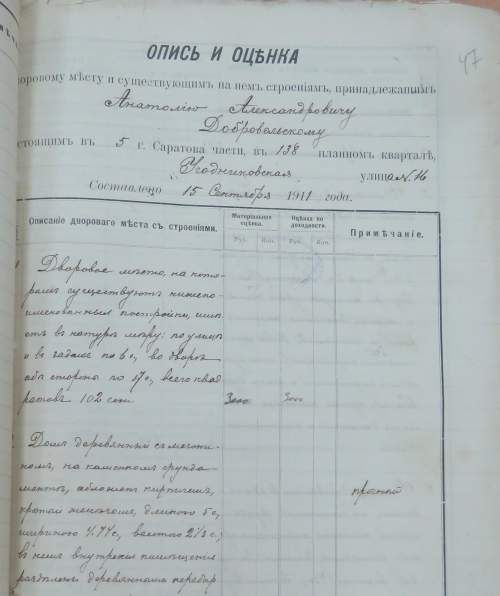 47
ОПИСЬ И ОЦѢНКА
воровому мѣсту и существующимъ на немъ строеніямъ, принадлежащимъ
Анатолію Александровичу
Добровольскому
стоящимъ въ 5 г. Саратова части, въ 138 планномъ кварталѣ,
Угодниковская улица № 16
Составлено 15 Сентября 1911 года.
Описаніе двороваго мѣста съ строеніями.
Матеріальная оцѣнка.
Оцѣнка по доходности.
Примѣчаніе.
Руб. Коп. Руб. Коп.
Дворовое мѣсто, на кото-
ромъ существуютъ нижепо-
именованныя постройки, имѣ-
етъ въ натурѣ мѣру: по улицѣ
и въ задахъ по 6 с, во дворъ
обѣ стороны по 17 с, всего квад
ратовъ 102 саж. 3000 3000
Домъ деревянный съ мезони-
номъ, на каменномъ фунда-
ментѣ, обложенъ кирпичемъ,
крытъ желѣзомъ, длиною 5 с,
шириною 4.44 с, высотою 2 1/3 с;
въ немъ внутреннія помѣщенія
раздѣлены деревянными перебор